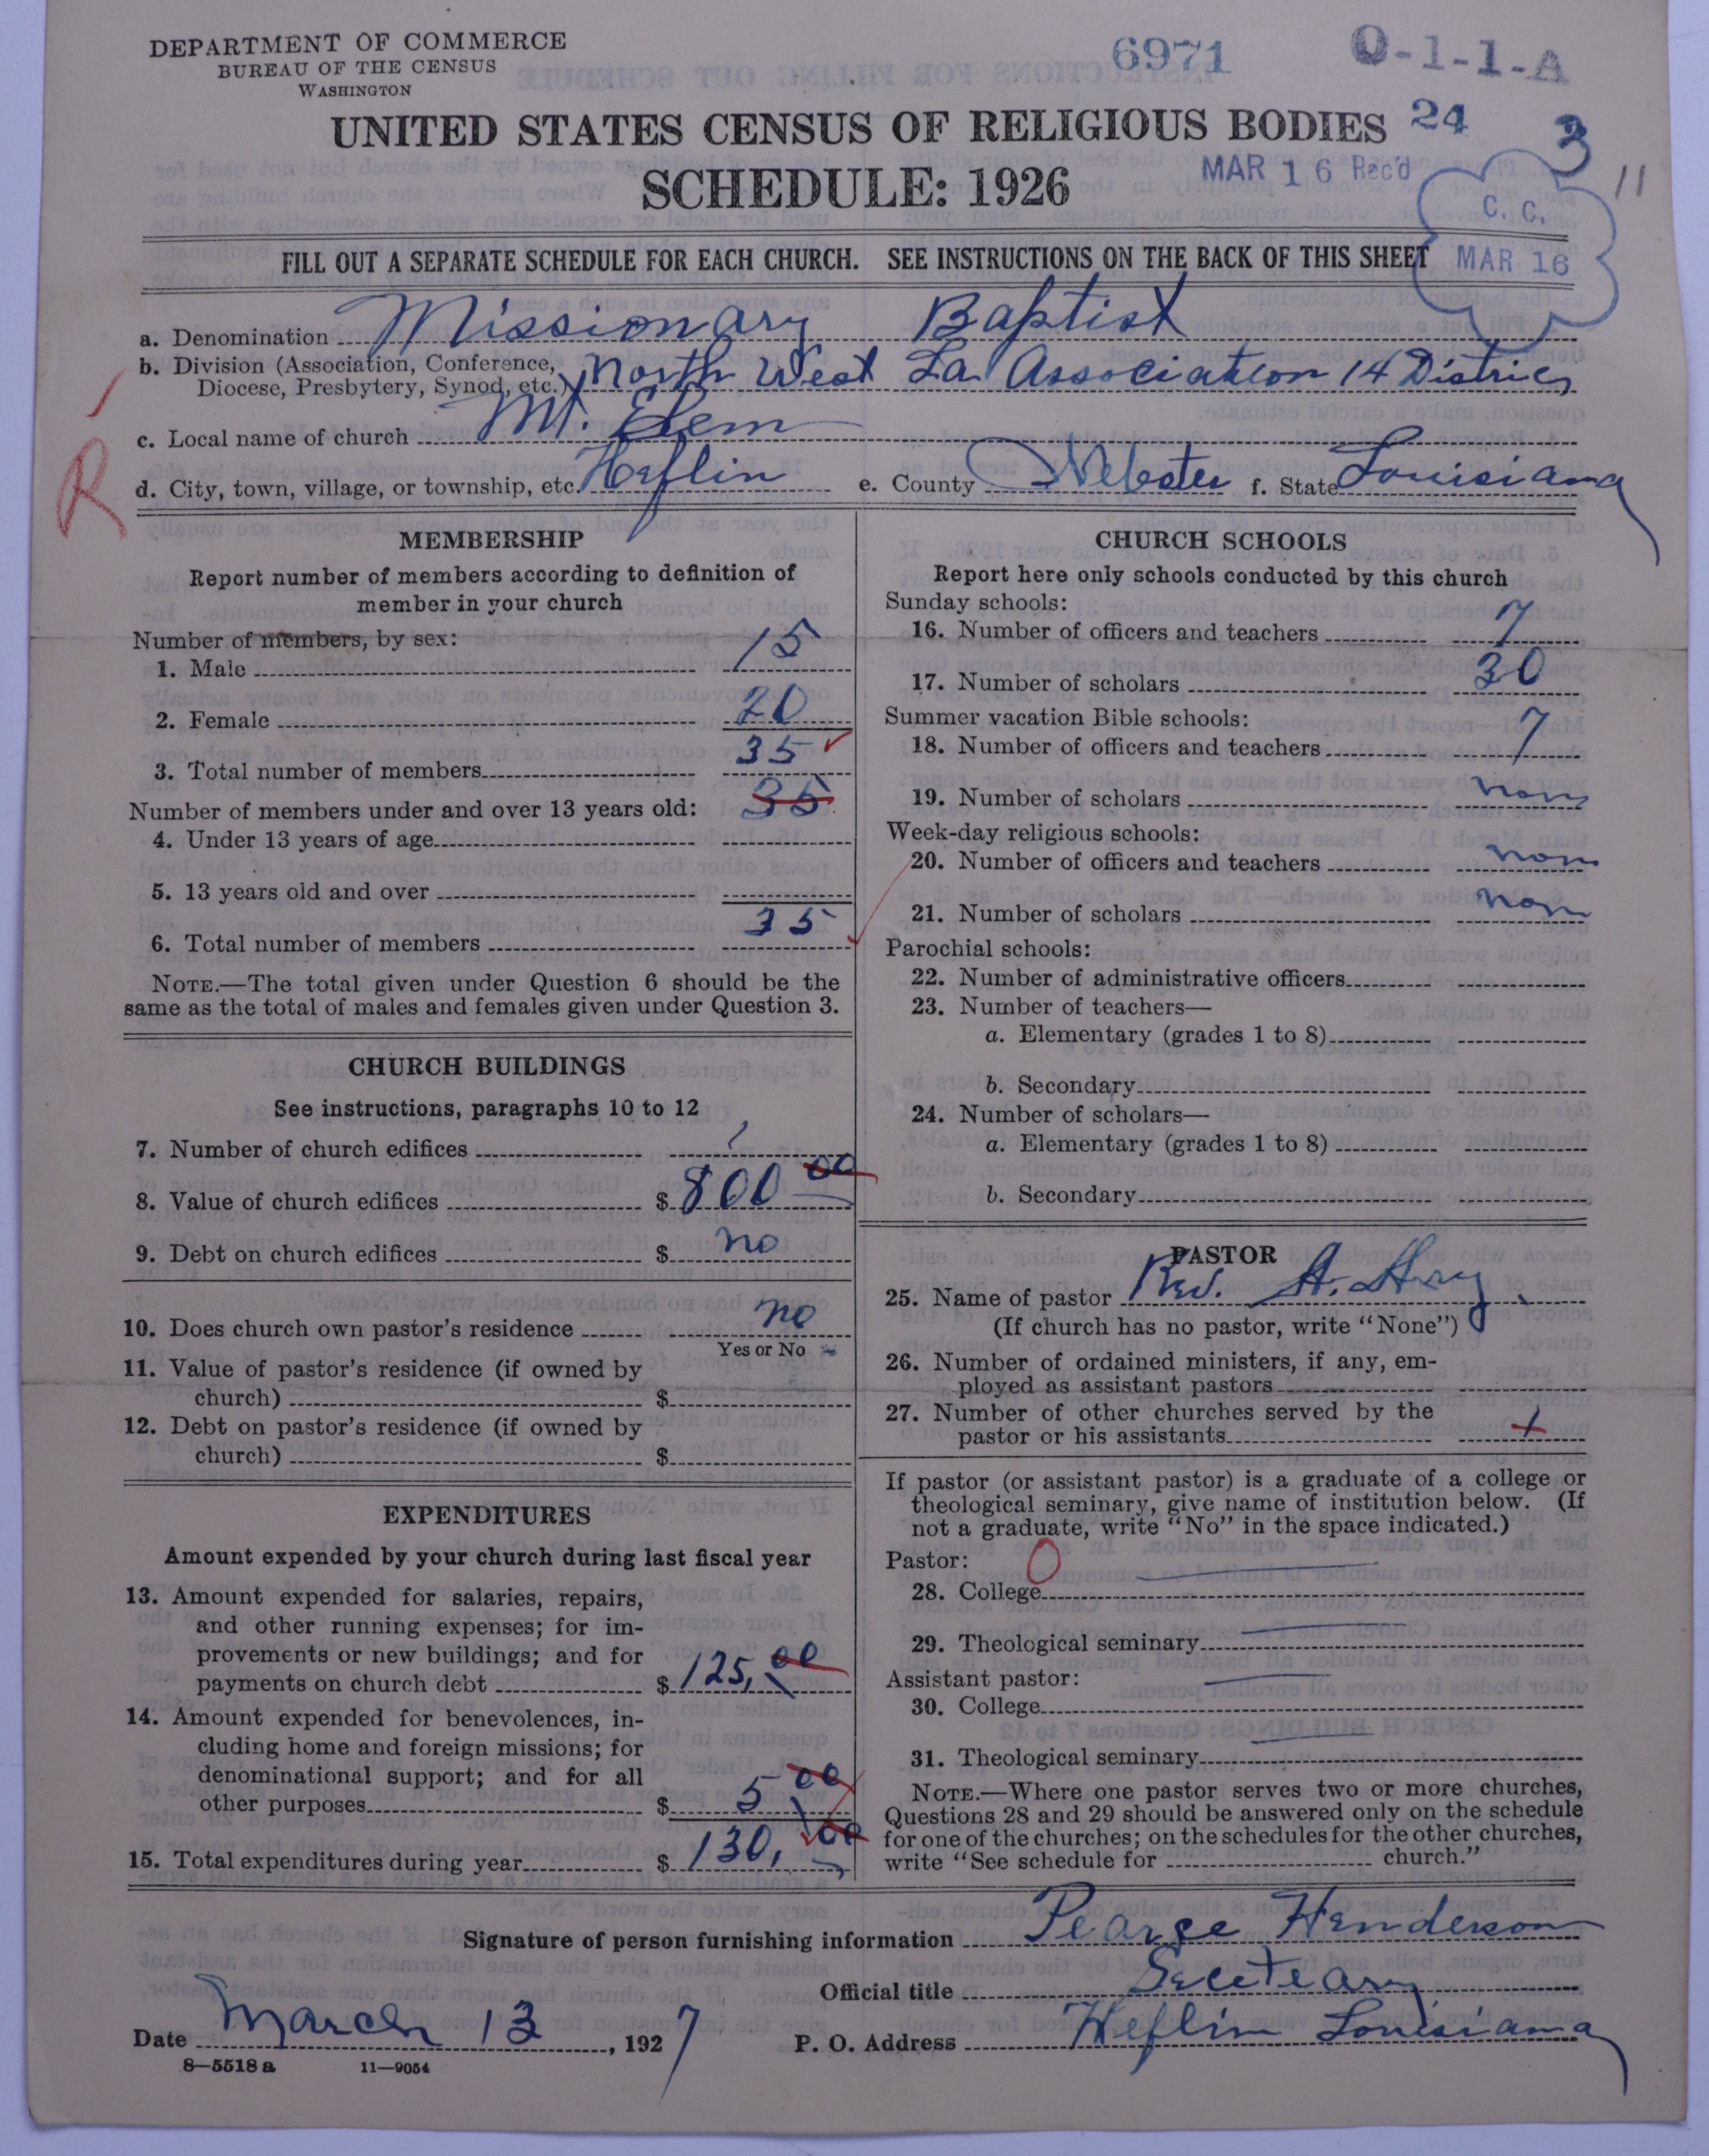 DEPARTMENT OF COMMERCE
BUREAU OF THE CENSUS
WASHINGTON
6971
O-1-1-A
UNITED STATES CENSUS OF RELIGIOUS BODIES
24
3
11
SCHEDULE: 1926
MAR 16 Rec'd
C. C.
MAR 16
FILL OUT A SEPARATE SCHEDULE FOR EACH CHURCH. SEE INSTRUCTIONS ON THE BACK OF THIS SHEET
a. Denomination Missionary Baptist
b. Division (Association, Conference,
Diocese, Presbytery, Synod, etc.) North West La Association 14 District
c. Local name of church Mt. Elem
R
d. City, town, village, or township, etc. Heflin e. County Webster f. State Louisiana
MEMBERSHIP
Report number of members according to definition of
member in your church
Number of members, by sex:
1. Male 15
2. Female 20
3. Total number of members 35
Number of members under and over 13 years old: 35
4. Under 13 years of age
5. 13 years old and over
6. Total number of members 35
NOTE.—The total given under Question 6 should be the
same as the total of males and females given under Question 3.
CHURCH BUILDINGS
See instructions, paragraphs 10 to 12
7. Number of church edifices 1
8. Value of church edifices $ 800 00
9. Debt on church edifices $ no
10. Does church own pastor's residence no
Yes or No
11. Value of pastor's residence (if owned by
church) $
12. Debt on pastor's residence (if owned by
church) $
EXPENDITURES
Amount expended by your church during last fiscal year
13. Amount expended for salaries, repairs,
and other running expenses; for im-
provements or new buildings; and for
payments on church debt $ 125, 00
14. Amount expended for benevolences, in-
cluding home and foreign missions; for
denominational support; and for all
other purposes $ 5 00
15. Total expenditures during year $ 130, 00
CHURCH SCHOOLS
Report here only schools conducted by this church
Sunday schools:
16. Number of officers and teachers 7
17. Number of scholars 30
Summer vacation Bible schools:
18. Number of officers and teachers 7
19. Number of scholars non
Week-day religious schools:
20. Number of officers and teachers non
21. Number of scholars non
Parochial schools:
22. Number of administrative officers
23. Number of teachers—
a. Elementary (grades 1 to 8)
b. Secondary
24. Number of scholars—
a. Elementary (grades 1 to 8)
b. Secondary
PASTOR
25. Name of pastor Rev. A.
(If church has no pastor, write "None")
26. Number of ordained ministers, if any, em-
ployed as assistant pastors
27. Number of other churches served by the
pastor or his assistants 1
If pastor (or assistant pastor) is a graduate of a college or
theological seminary, give name of institution below. (If
not a graduate, write "No" in the space indicated.)
Pastor: 0
28. College
29. Theological seminary
Assistant pastor:
30. College
31. Theological seminary
NOTE.—Where one pastor serves two or more churches,
Questions 28 and 29 should be answered only on the schedule
for one of the churches; on the schedules for the other churches,
write "See schedule for church."
Signature of person furnishing information Pearce Henderson
Official title Seceteary
Date March 13, 1927 P. O. Address Heflin Louisiana
8—5518 a 11—9054